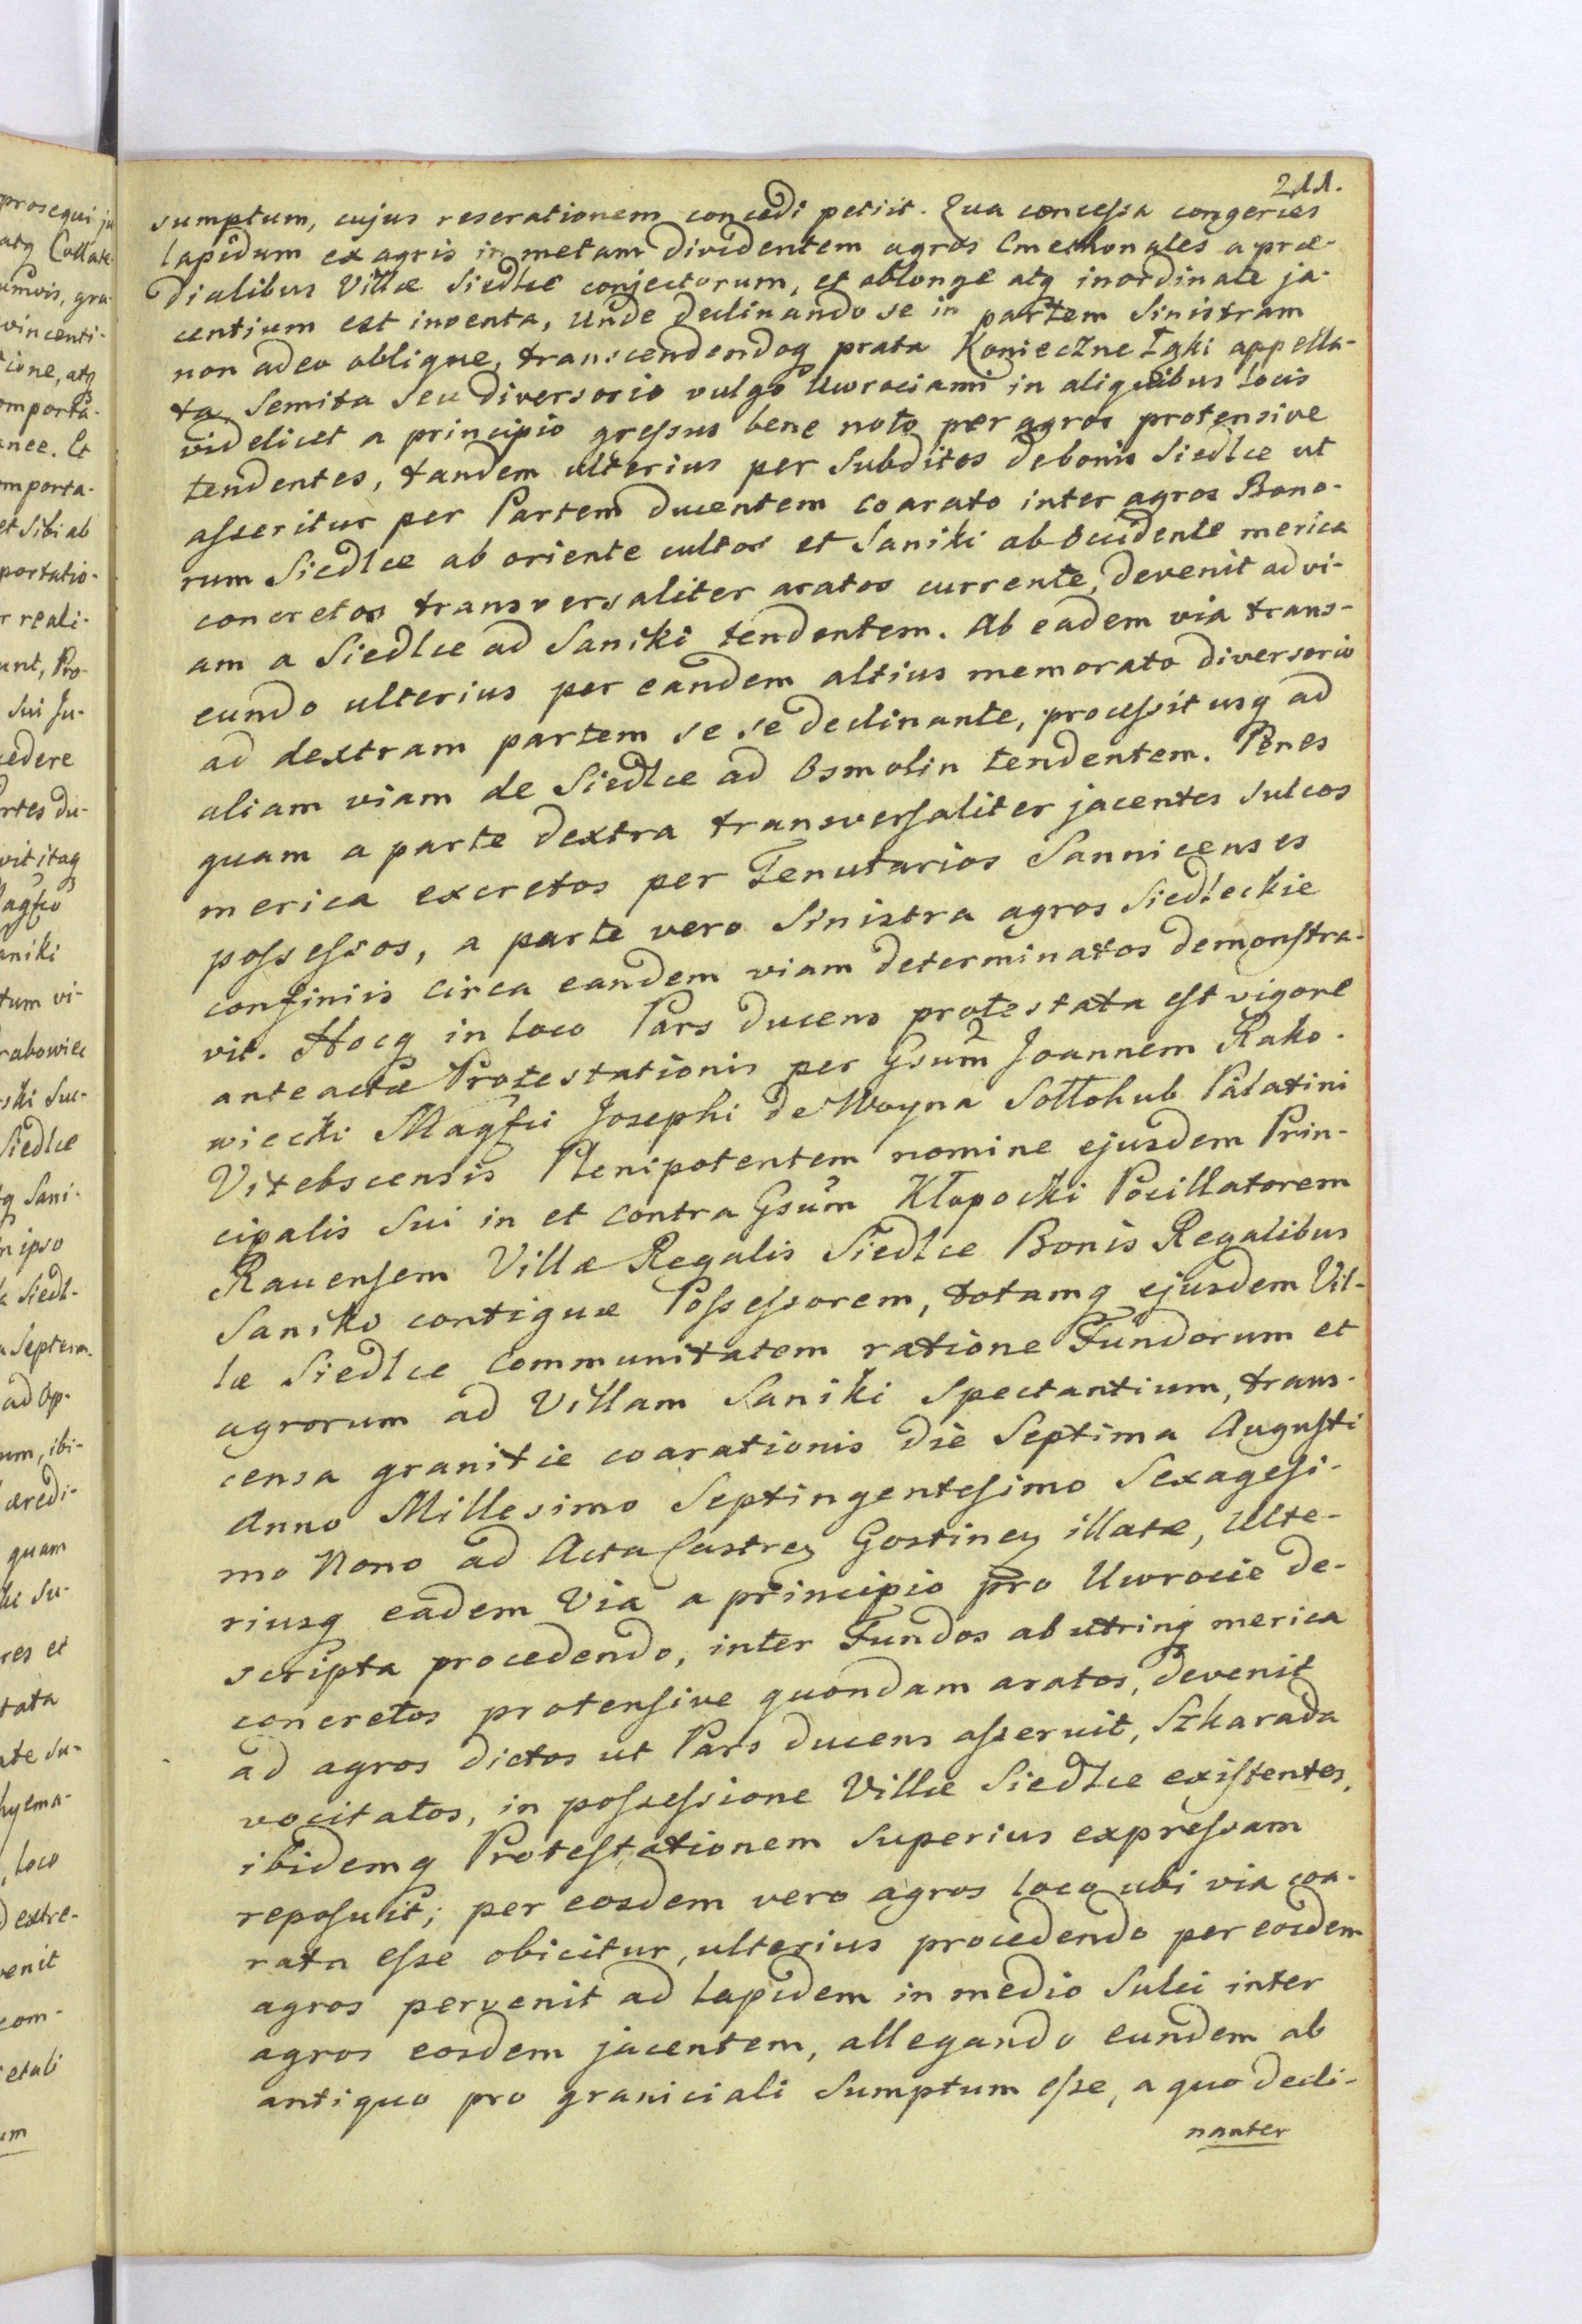 prosequi ju
atq Collate-
umvis, gra-
vincenti-
tione, atq
omporta-
anee. Et
mporta-
et Sibi ab
portatio-
r reali-
unt, Pro-
Sui Ju-
cedere
rtes du-
vit itaq
Magfco
aniki
tum vi-
rabowiec
ski Suc-
Siedlce
tq Sani-
n ipso
a Siedl-
a Septem-
ad Op-
um, ibi-
aeredi-
quam
ki Su-
res et
tata
ate su-
hyema-
, loco
dextre-
venit
com-
etali
um
211.
sumptum, cujus reserationem concedi petiit. Qua concessa congeries
lapidum ex agris in metam dividentem agros Cmethonales a præ-
dialibus Villæ Siedlce conjectorum, et oblonge atq inordinate ja-
centium est inventa, Unde declinando se in partem Sinistram
non adeo oblique, transcendendoq prata Konieczne Łąki appella-
ta, Semita Seu diversorio vulgo Uwrociami in aliquibus locis
videlicet a principio gressus bene noto per agros protensive
tendentes, tandem ulterius per Subditos de bonis Siedlce ut
asseritur per Partem ducentem coarato inter agros Bono-
rum Siedlce ab oriente cultos et Saniki ab Occidente merica
concretos transversaliter aratos currente, devenit ad vi-
am a Siedlce ad Saniki tendentem. Ab eadem via trans-
eundo ulterius per eandem altius memorato diversorio
ad dextram partem se se declinante, processit usq ad
aliam viam de Siedlce ad Osmolin tendentem. Penes
quam a parte dextra transversaliter jacentes sulcos
merica excretos per Tenutarios Sannicenses
possessos, a parte vero Sinistra agros Siedleckie
confiniis circa eandem viam determinatos demonstra-
vit. Hocq in loco Pars ducens protestata est vigore
anteactæ Protestationis per Gsum Joannem Rako-
wiecki Magfci Josephi de Woyna Sołłohub Palatini
Vitebscensis Plenipotentem nomine ejusdem Prin-
cipalis Sui in et contra Gsum Kłopocki Pocillatorem
Ravensem Villæ Regalis Siedlce Bonis Regalibus
Saniko contiguæ Possessorem, totamq ejusdem Vil-
læ Siedlce Communitatem ratione Fundorum et
agrorum ad Villam Saniki Spectantium, trans-
censa granitie coarationis die Septima Augusti
Anno Millesimo Septingentesimo Sexagesi-
mo Nono ad Acta Castren Gostinen illatæ, Ulte-
riusq eadem Via a principio pro Uwrocie de-
scripta procedendo, inter Fundos ab utrinq merica
concretos protensive quondam aratos, devenit
ad agros dictos ut Pars ducens asseruit, Szkarada
vocitatos, in possessione Villæ Siedlce existentes,
ibidemq Protestationem superius expressam
reposuit; per eosdem vero agros loco ubi via coa-
rata esse obicitur, ulterius procedendo per eosdem
agros pervenit ad lapidem in medio Sulci inter
agros eosdem jacentem, allegando eundem ab
antiquo pro graniciali Sumptum esse, a quo decli-
nanter